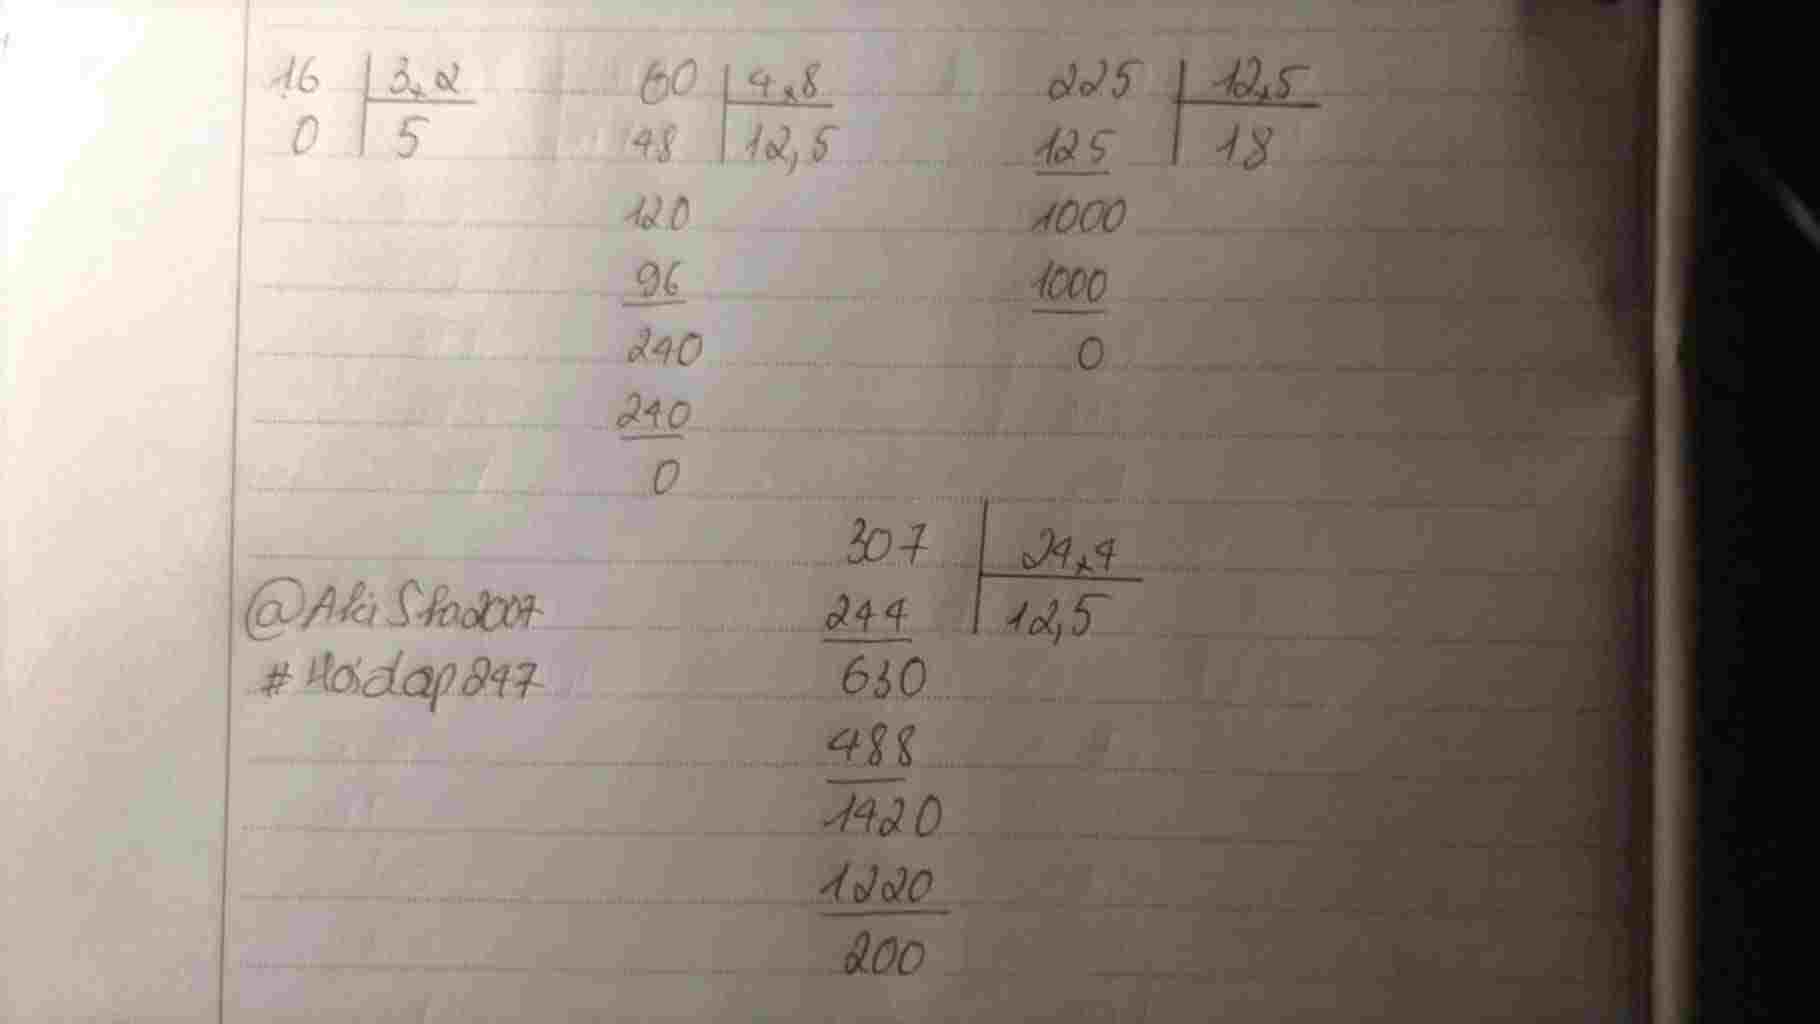 16 3,2
0 5
60 4,8
48 12,5
120
96
240
240
0
225 12,5
125 18
1000
1000
0
307 24,4
244 12,5
630
488
1420
1220
200
@AkiSta2007
#Hoidap247